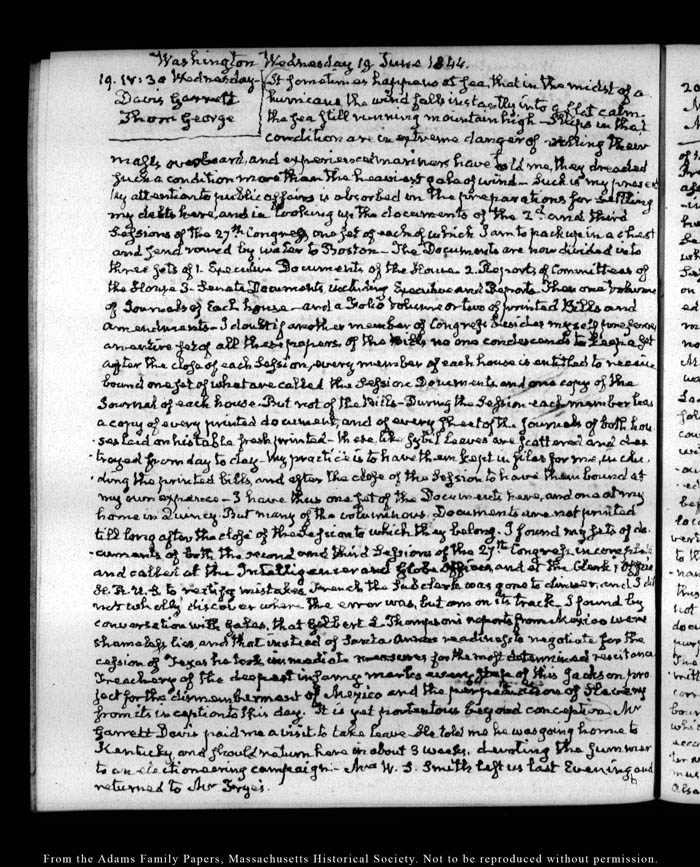 Washington Wednesday 19 June 1844.
19. IV:30 Wednesday- It sometimes happens at sea, that in the midst of a
Davis Garrett hurricane the wind falls instantly into a flat calm
Thorn George the sea still running mountain high - Ships in that
condition are in extreme danger of rolling their
masts overboard, and experienced mariners have told me, they dreaded
such a condition more than the heaviest gale of wind - Such is my present
My attention to public affairs is absorbed in the preparations for settling
my debts here, and in looking up the documents of the 2d and third
Sessions of the 27th Congress, one set of each of which I am to pack up in a chest
and send round by water to Boston - The Documents are now divided into
three sets of 1. Executive Documents of the House 2. Reports of Committees of
the House 3. Senate Documents, including Executive and Reports. Then one volume
of Journals of each house - and a Folio volume or two of printed Bills and
amendments - I doubt if another member of Congress besides myself preserves
an entire set of all these papers. Of the Bills no one condescends to keep a set
after the close of each Session, every member of each house is entitled to receive
bound one set of what are called the Session Documents and one copy of the
Journal of each house - But not of the Bills - During the Session each member has
a copy of every printed document, and of every sheet of the Journals of both hou-
ses laid on his table fresh printed - these like Sybil Leaves are scattered and des
troyed from day to day - My practice is to have them kept in files for me, inclu
ding the printed bills, and after the close of the Session to have them bound at
my own expence - I have thus one set of the Documents here, and one at my
home in Quincy. But many of the voluminous Documents are not printed
till long after the close of the Session to which they belong. I found my sets of do
cuments of both the second and third Sessions of the 27th Congress incomplete
and called at the Intelligencer and Globe Offices, and at the Clerk's Office
H.R.U.S. to rectify mistakes. French the Sub clerk was gone to dinner, and I did
not wholly discover where the error was, but am on its track. I found by
conversation with Gales, that Gilbert L. Thompson's reports from Mexico were
shameless lies, and that instead of Santa Anna's readiness to negotiate for the
cession of Texas he took immediate measures for the most determined resistance
Treachery of the deepest infamy marks every step of this Jackson pro
ject for the dismemberment of Mexico and the perpetuation of Slavery
from its inception to this day. It is yet portentous beyond conception. Mr
Garrett Davis paid me a visit to take leave. He told me he was going home to
Kentucky, and should return here in about 3 weeks, devoting the summer
to an electioneering campaign. - Mrs W. S. Smith left us last Evening, and
returned to Mr Frye's.
From the Adams Family Papers, Massachusetts Historical Society. Not to be reproduced without permission.